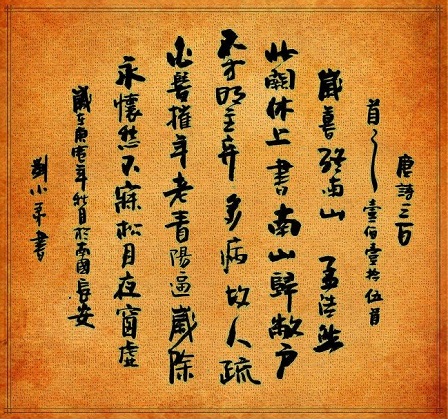 唐詩三百
首之一 壹佰壹拾伍首
歲暮歸南山 孟浩然
北闕休上書南山歸敝户
不才明主弃多病故人疏
白髮催年老青陽逼歲除
永懷愁不寐松月夜窗虛
歲在庚年秋月於國長安
劉小平書